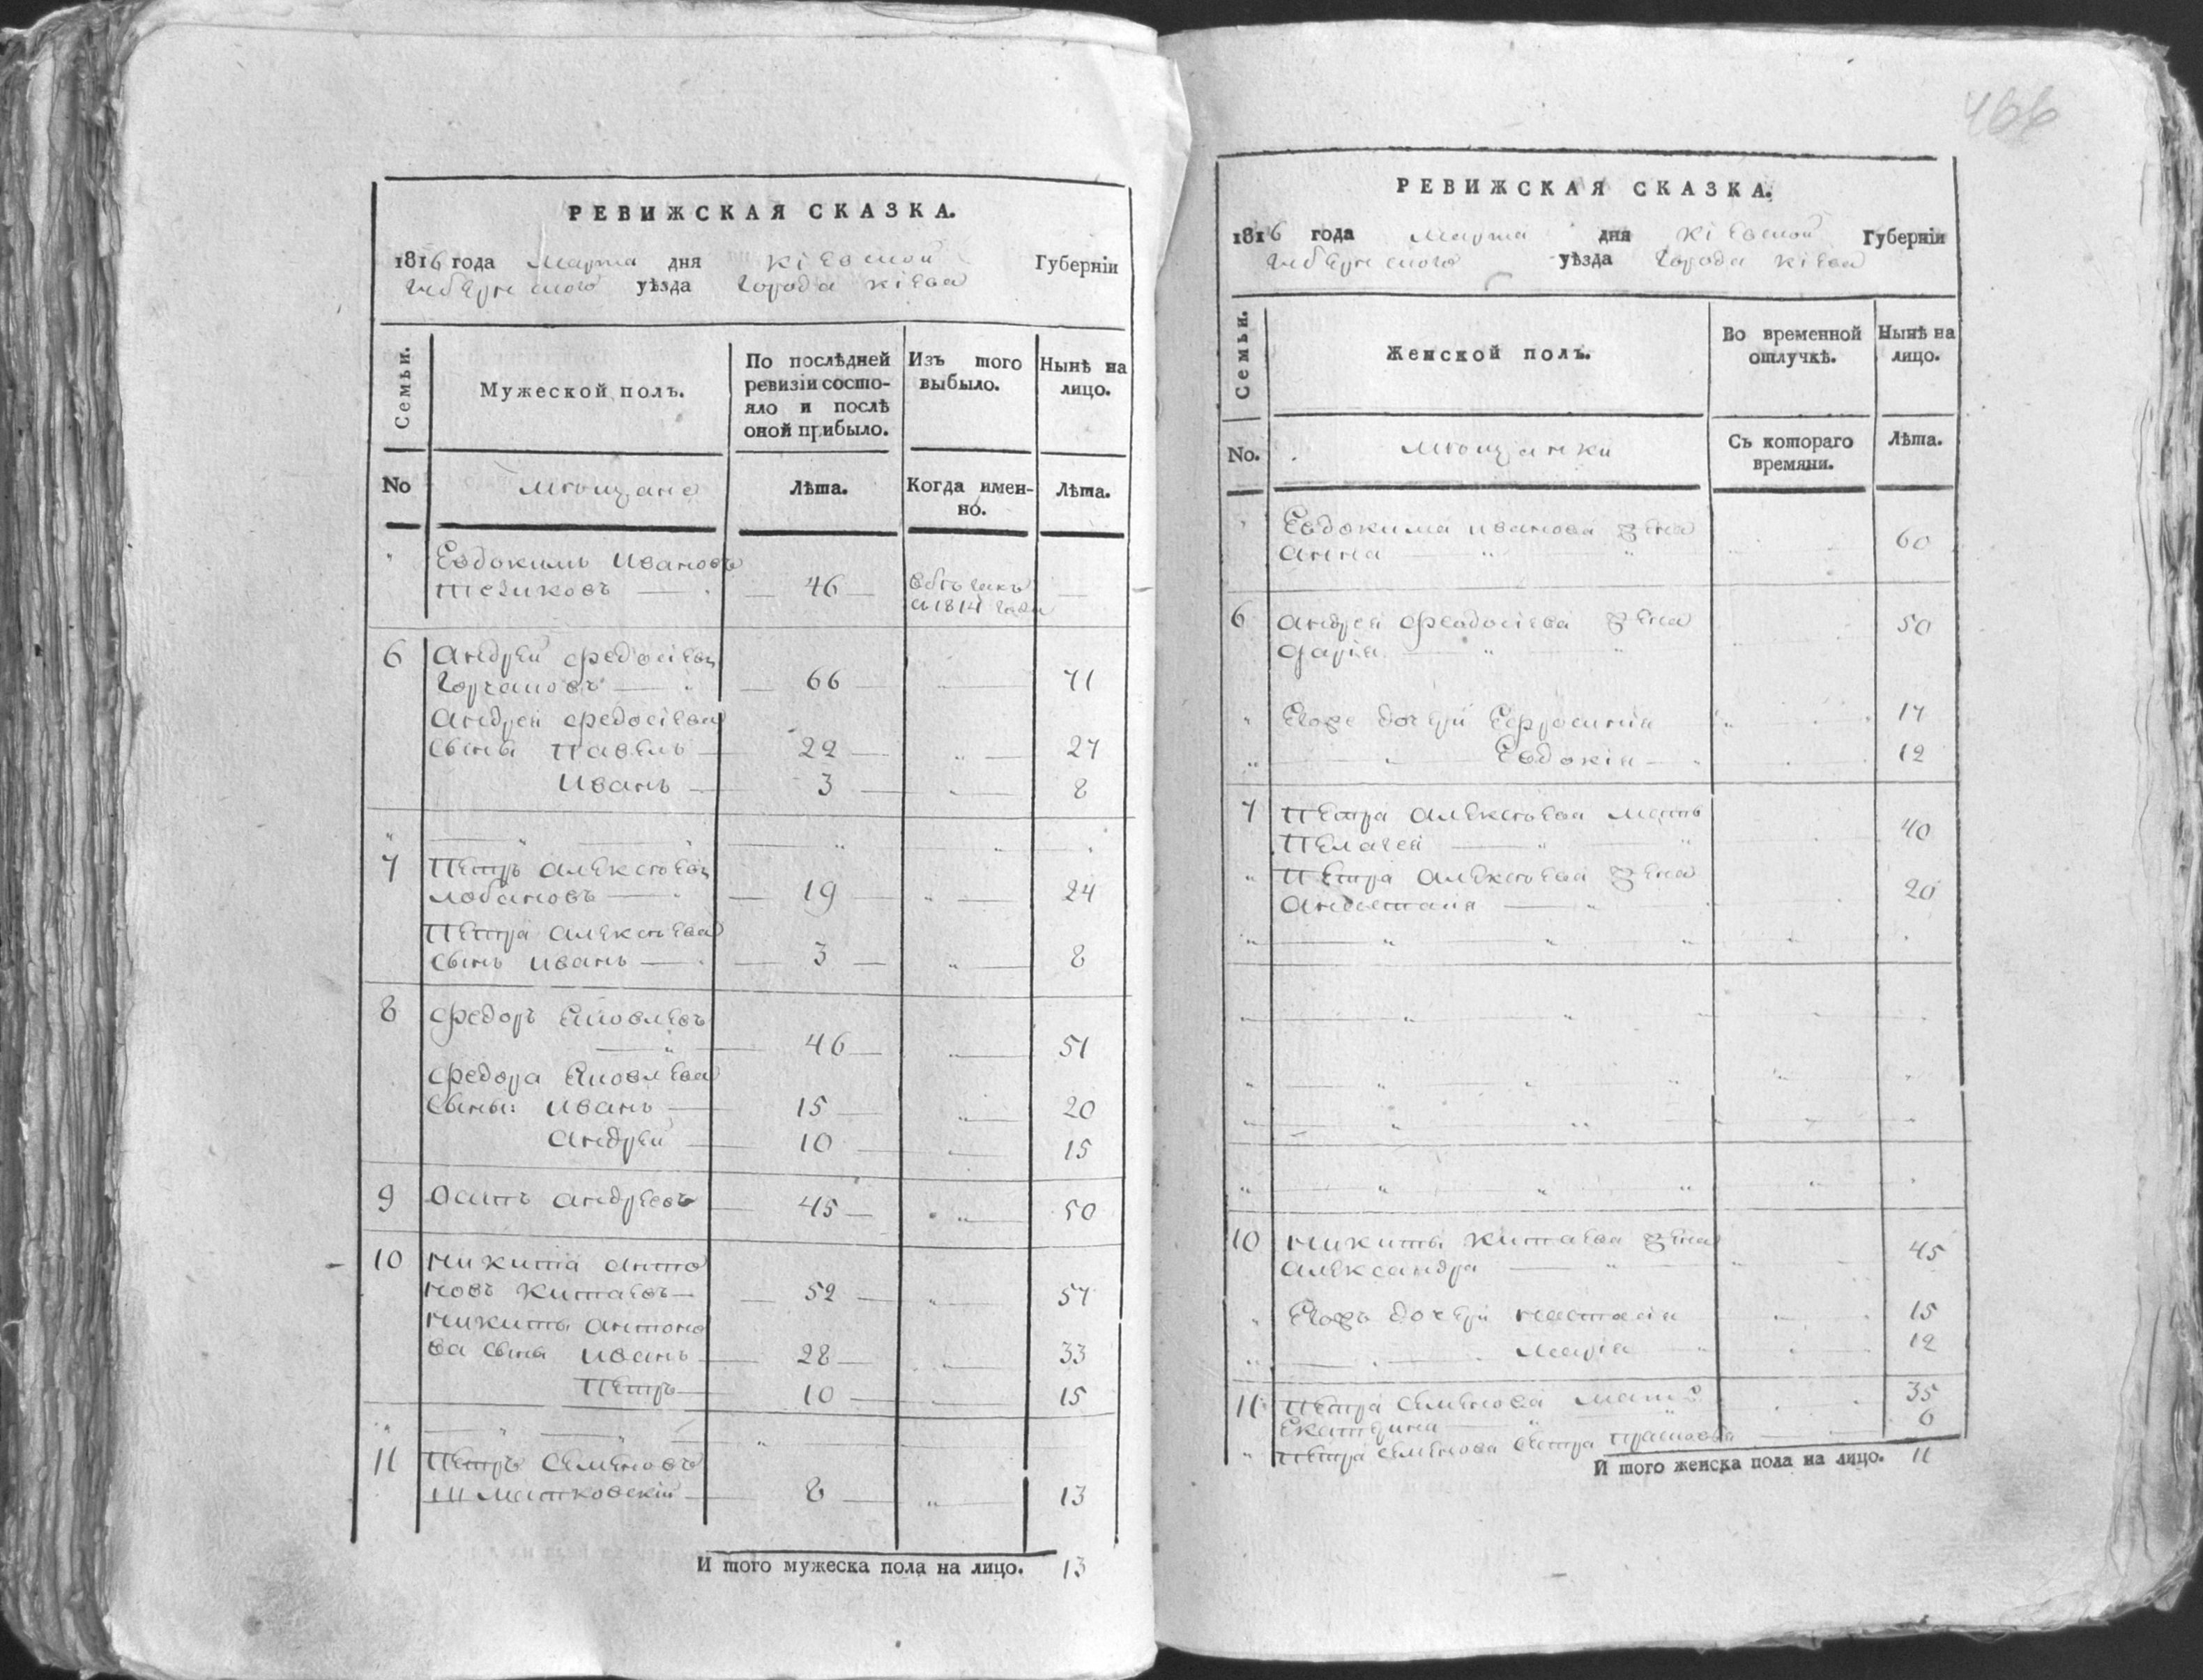 466
РЕВИЖСКАЯ СКАЗКА.
1816 года Марта дня Кіевской Губерніи
уѣзда Города Кіева
Семьи.
Мужеской полъ.
По послѣдней ревизіи состояло и послѣ оной прибыло.
Изъ того выбыло.
Нынѣ на лицо.
No
мѣщане
Лѣта.
Когда именно.
Лѣта.
" Евдокимъ Ивановъ
— 46 — въ бѣгахъ —
съ 1814 года
6 Андрей Федосіевъ
Горчаковъ — 66 — 71
Андрея Федосіева
сыны Павелъ — 22 — " — 27
Иванъ — 3 — " — 8
7 Петръ Алексѣевъ
Лобановъ — 19 — " — 24
Петра Алексѣева
сынъ Иванъ — 3 — " — 8
8 Федоръ Яковлевъ
— " — 46 — " — 51
Федора Яковлева
сыны: Иванъ — 15 — " — 20
Андрей — 10 — " — 15
9 Осипъ Андреевъ — 45 — " — 50
10 Никита Анто
новъ Китаевъ — 52 — " — 57
Никиты Антоно
ва сыны Иванъ — 28 — " — 33
Петръ — 10 — 15
11 Петръ Семеновъ
Шматковскій — 8 — " — 13
И того мужеска пола на лицо. 13
РЕВИЖСКАЯ СКАЗКА.
1816 года Марта дня Кіевской Губерніи
уѣзда Города Кіева
Семьи.
Женской полъ.
Во временной отлучкѣ.
Нынѣ на лицо.
No.
мѣщанки
Съ котораго времяни.
Лѣта.
" Евдокима Иванова жена
Анна — " — " 60
6 Андрея Феодосіева жена
Дарія — " — " 50
" Егоже дочери Ефросинія " 17
" — " — Евдокія — " 12
7 Петра Алексѣева мать
Пелагея — " — " 40
" Петра Алексѣева жена
— " 20
10 Никиты Китаева жена
Александра — " — " 45
" Егожъ дочери Настасія 15
" — " Марія — " 12
11 Петра Семенова мать 35
Екатерина
" Петра Семенова сестра Прасковья — 6
И того женска пола на лицо. 11